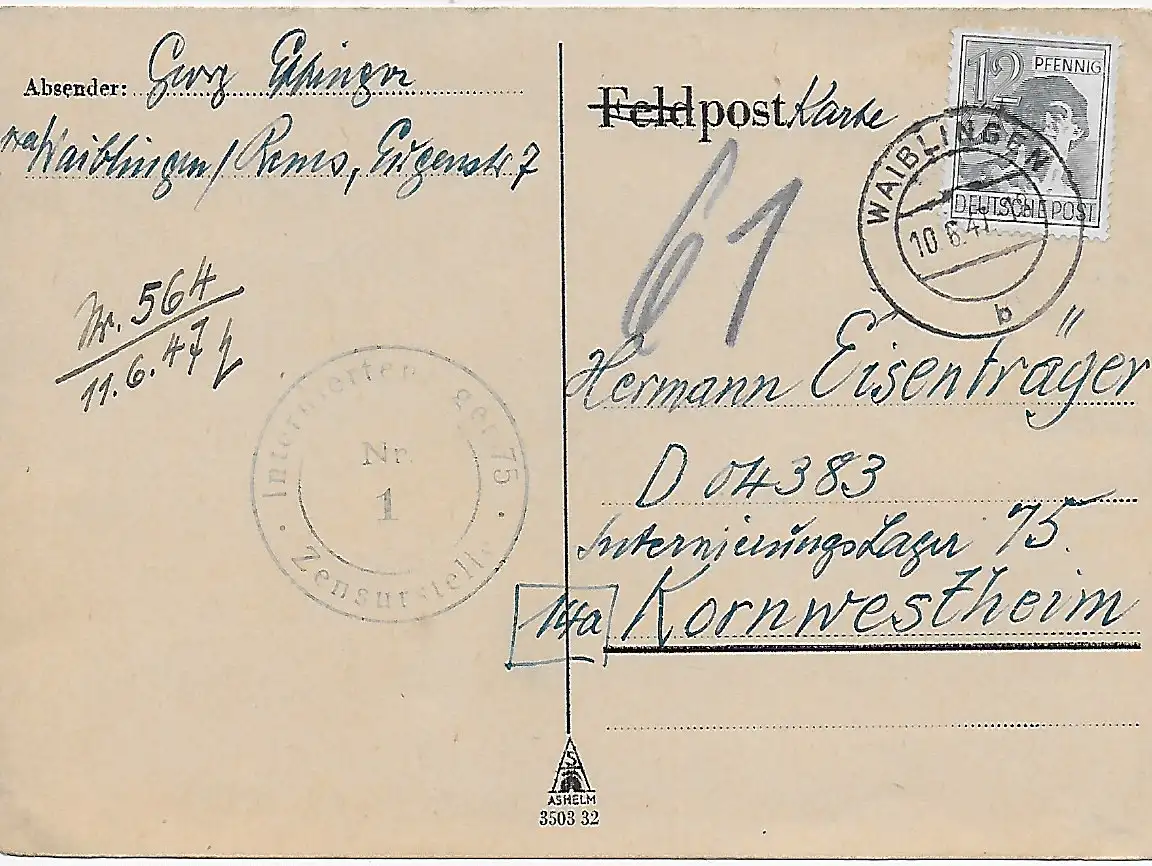 Absender: Georg
Waiblingen / Rems, Eugenstr 7
Nr. 564
11.6.47
Interniertenlager 75
Nr.
1
Zensurstelle
Feldpost Karte
12 PFENNIG
DEUTSCHE POST
WAIBLINGEN
10.6.47
b
61
Hermann Eisenträger
D 04383
Internierungslager 75.
14a Kornwestheim
S
ASHELM
3503 32